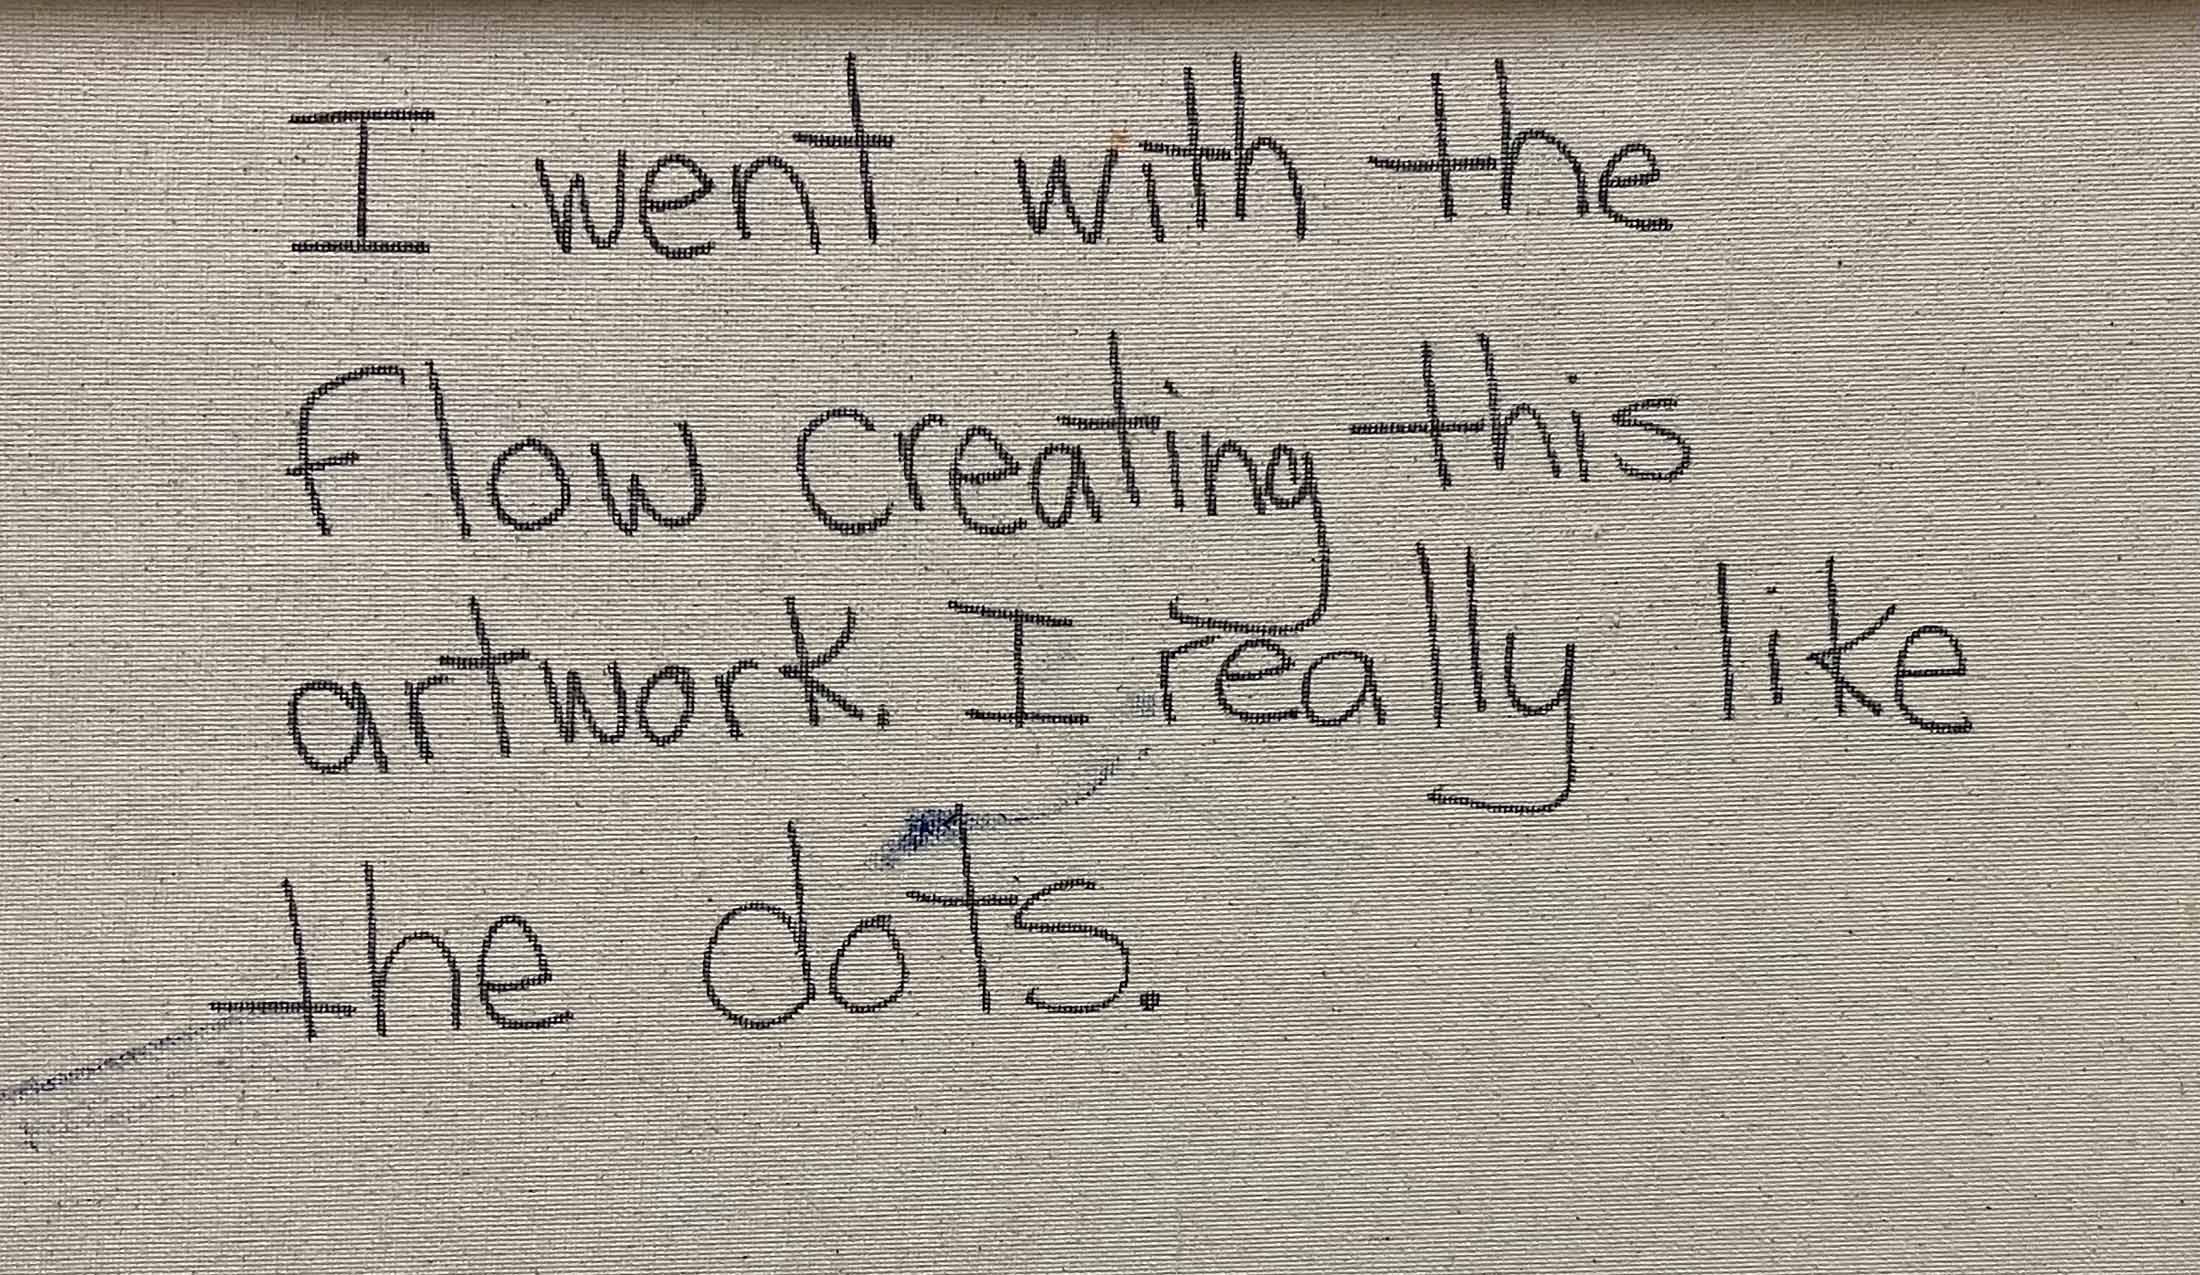 I went with the
Flow creating this
artwork. I really like
the dots.